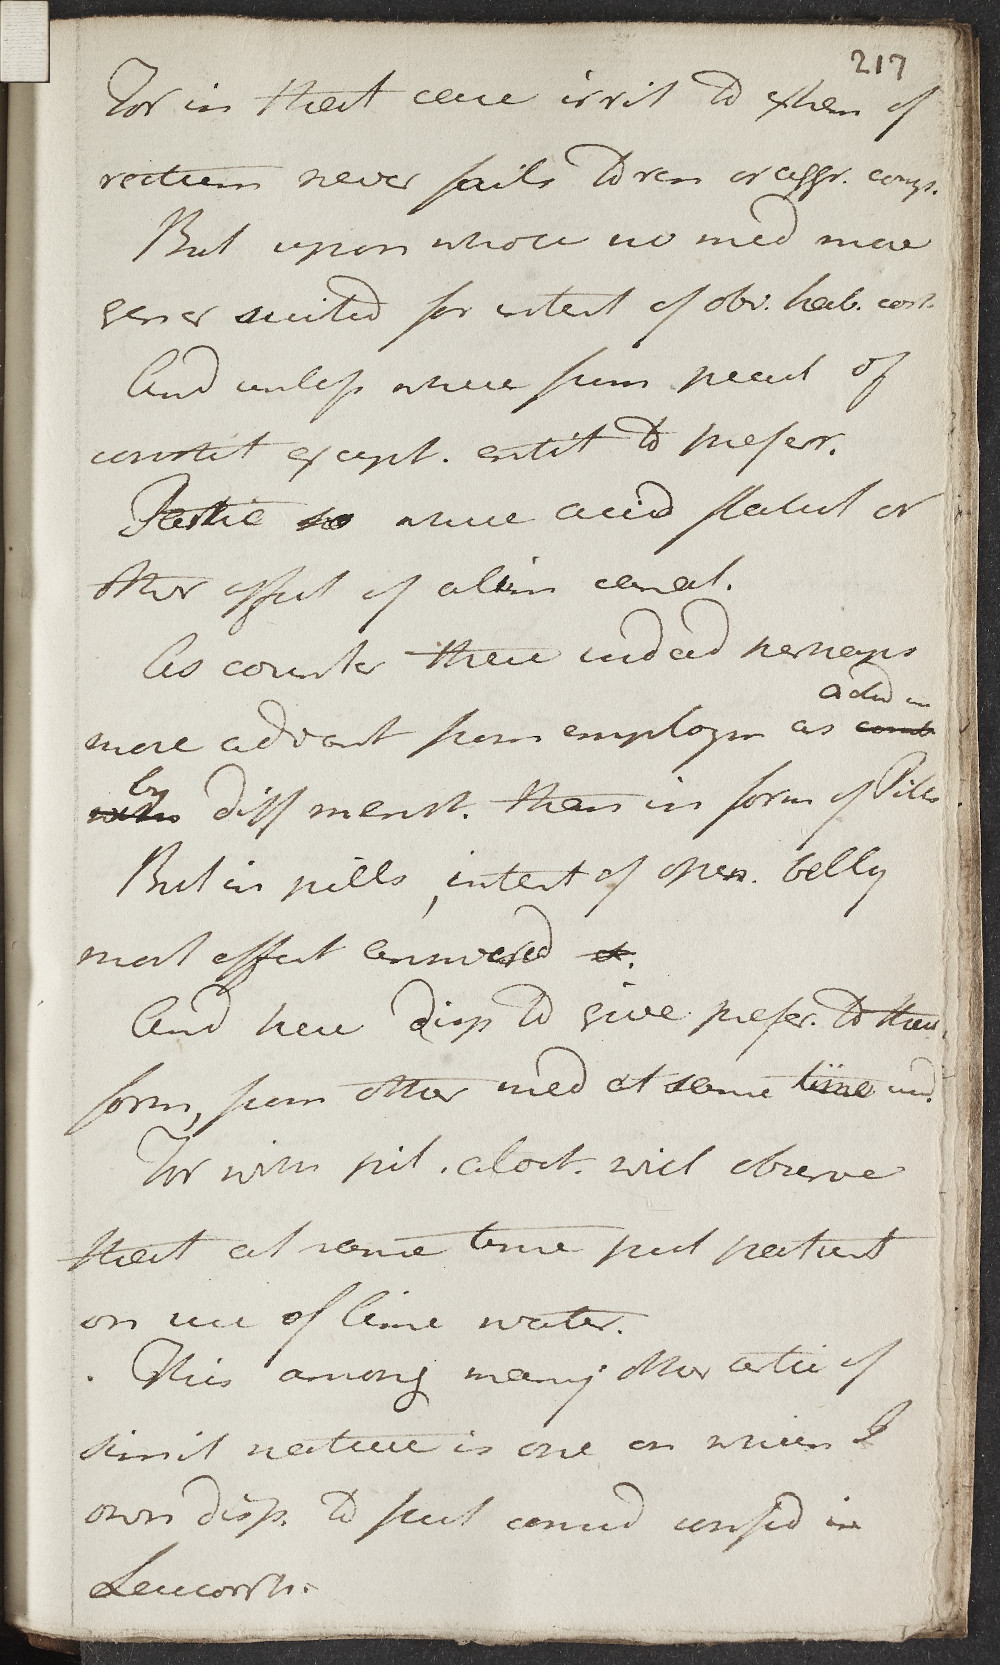 217
For in that case irrit to extrem of
rectum never fails to ren or aggr. comp.
But upon whole no med more
gener suited for intent of obv. hab. cost.
And unless where from pecul of
constit except. entit to prefer.
Partic so where acid flatul or
other affect of alim canal.
As counter these indeed perhaps
adm in
more advant from employm as comb
by
with diff menst. than in form of Pills.
But in pills, intent of open. belly
most effect answered &.
And here disp to give prefer. to these
form, from other med at same time und.
For with pil. aloet. will observe
that at same time put patient
on use of lime water.
. This among many other artic of
simil nature is one on which I
own disp. to put consid confid in
Leucorrh.